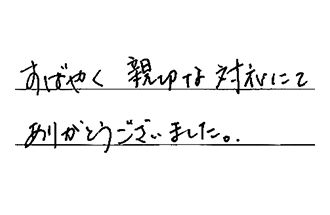 すばやく 親切な対応にて
ありがとうございました。